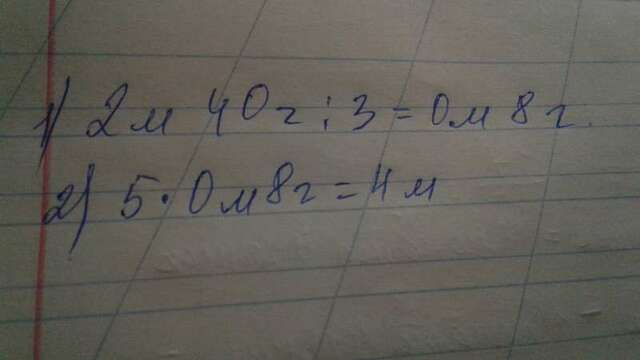 1) 2м 40г : 3 = 0м 8г.
2) 5 · 0м8г = 4м